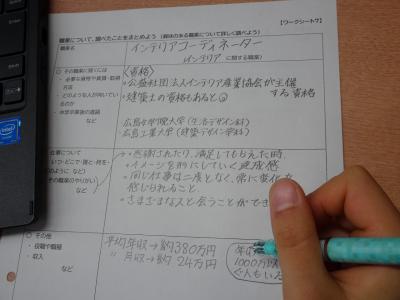 【ワークシート7】
職業について、調べたことをまとめよう（興味のある職業について詳しく調べよう）
職業名
インテリアコーディネーター
（インテリア に関する職業）
○ その職業に就くには
・必要な資格や資質・取得方法
・どのような人が向いているのか
・中学卒業後の進路
など
〈資格〉
・公益社団法人インテリア産業協会が主催する資格
・建築士の資格もあると◎
広島女学院大学（生活デザイン学科）
広島工業大学（建築デザイン学科）
仕事について
いつ・どこで・誰と・何を・
のように など）
その職業のやりがい
など
・感謝されたり、満足してもらえた時
・イメージを形にしていく達成感
・同じ仕事は二度となく、常に変化を
感じられること。
・さまざまな人と会うことができ
○ その他
・役職や職層
・収入
など
平均年収→約380万円
〃 月収→約24万円
1000万以
人もいる
intel